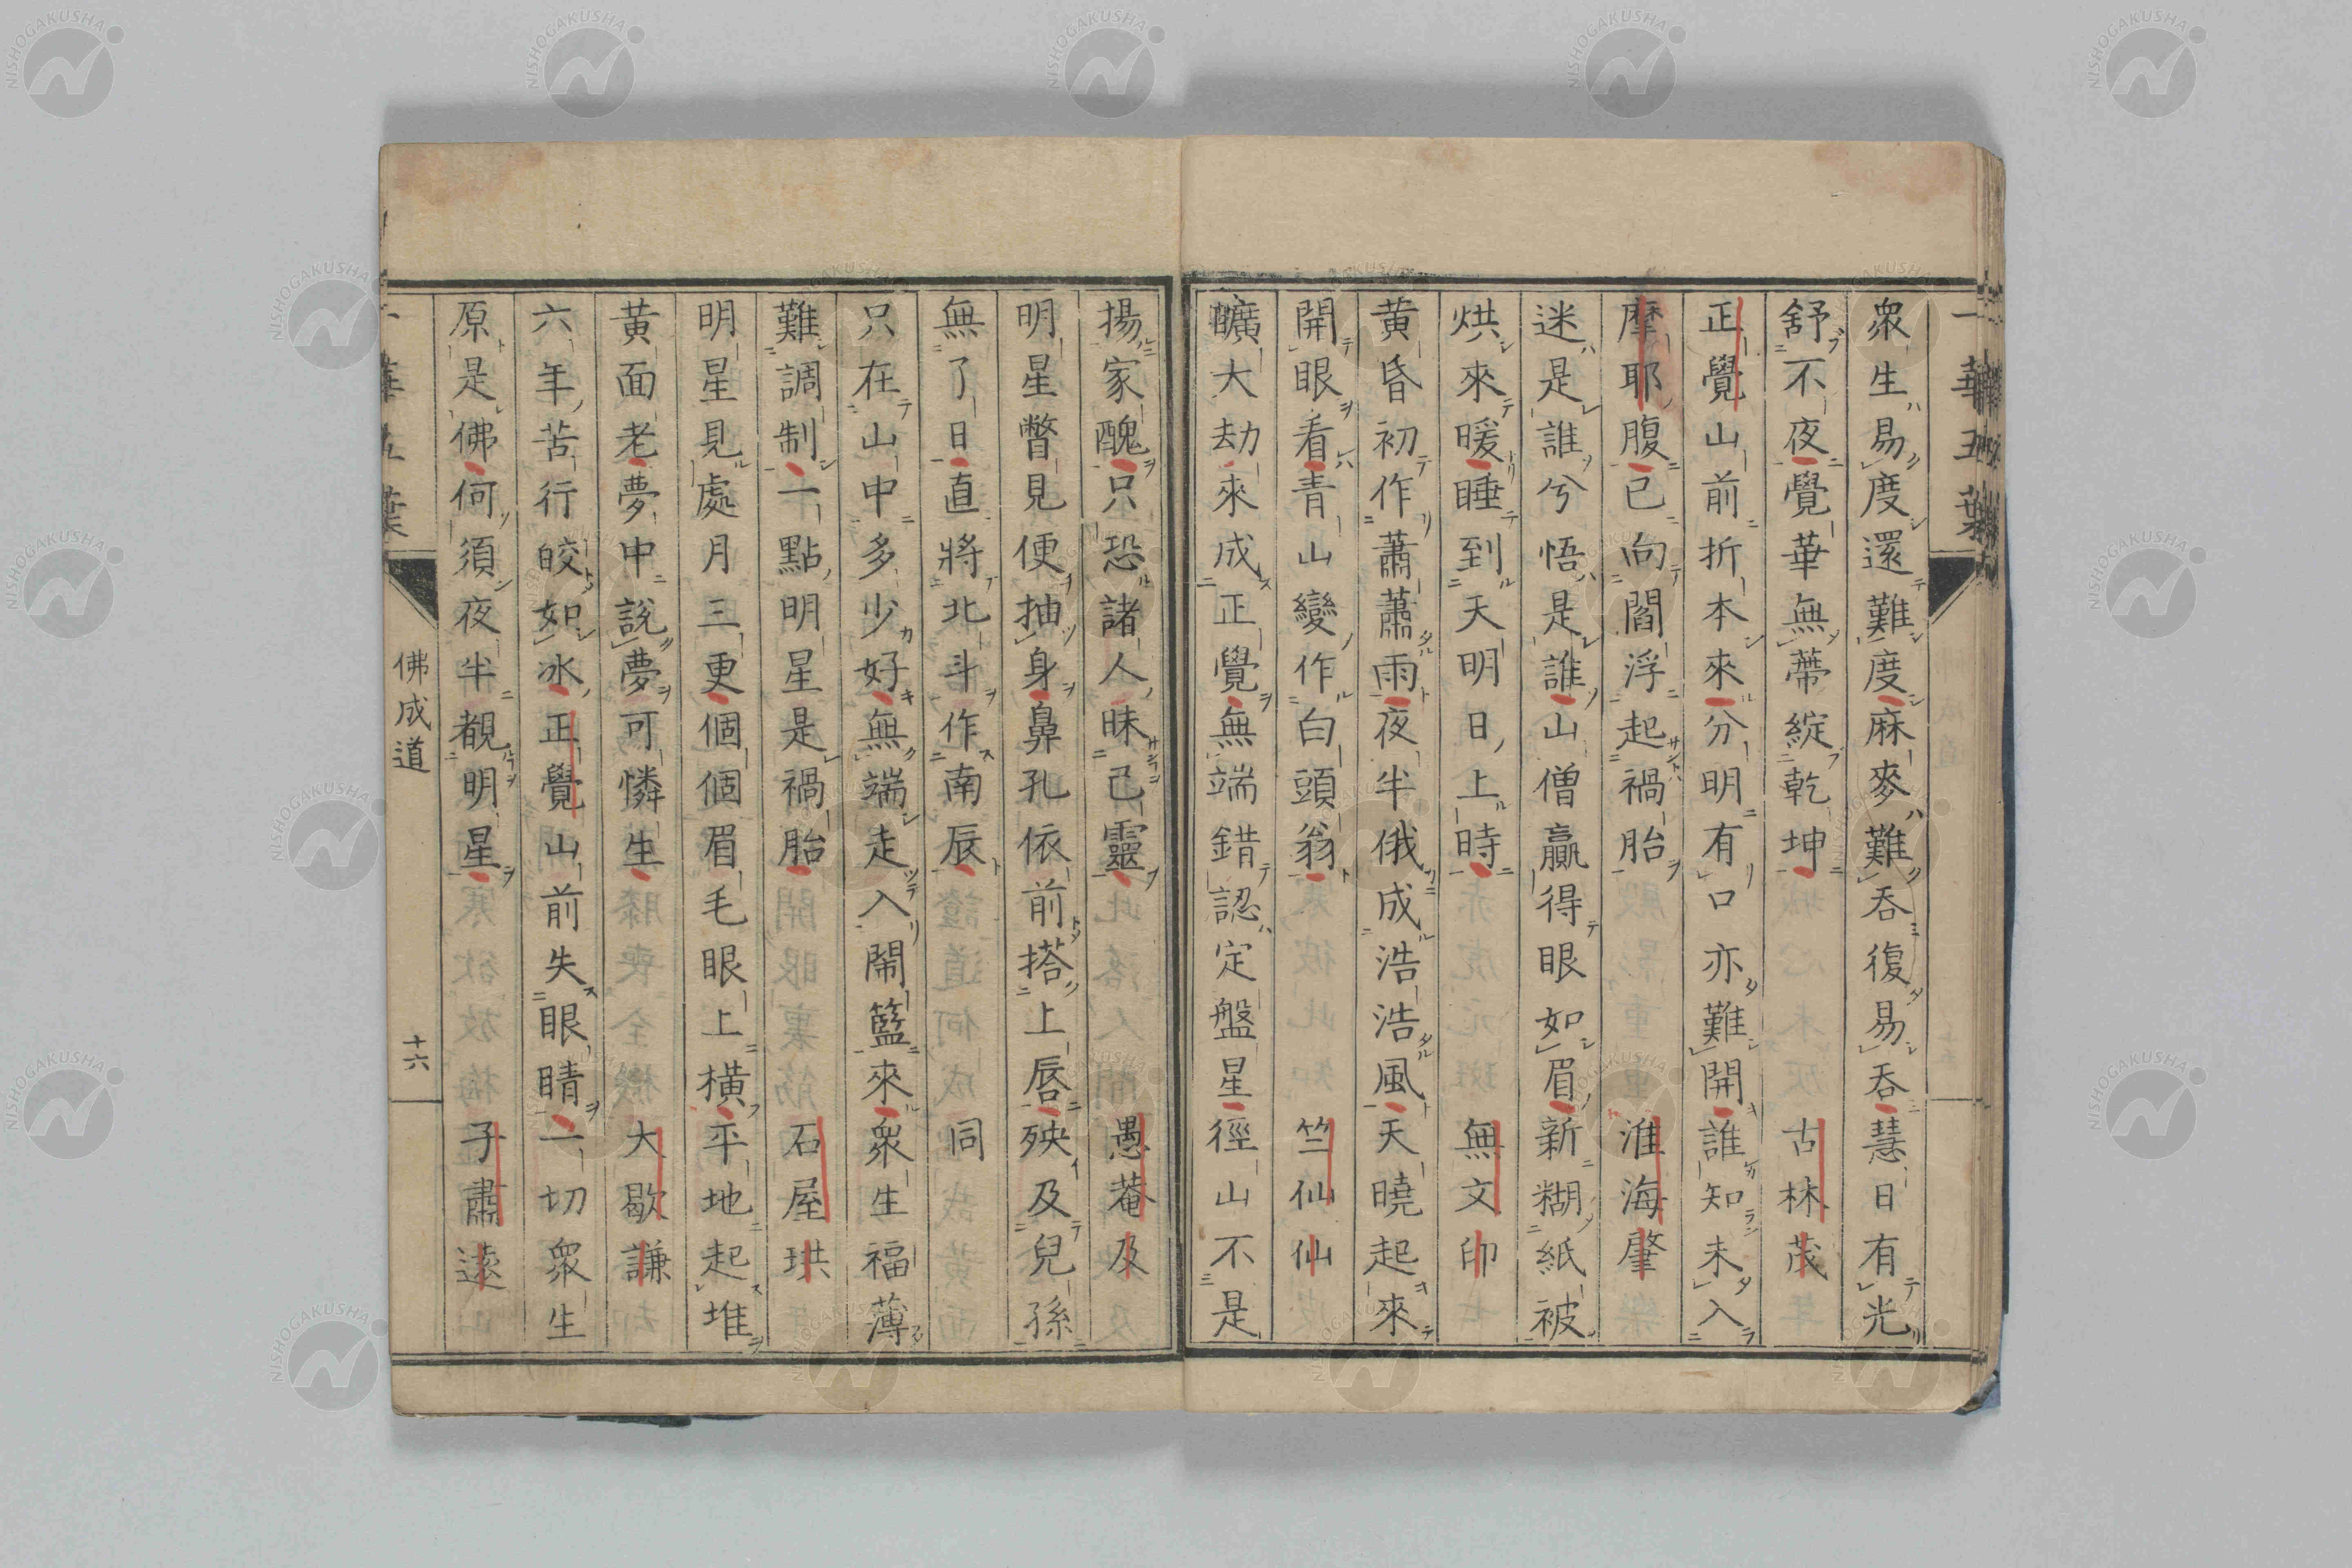 一華五葉
衆生易度還難度麻麥難吞復易吞慧日有光
舒不夜覺華無蔕綻乾坤 古林茂
正覺山前折本來分明有口亦難開誰知未入
摩耶腹已向閻浮起禍胎 淮海肇
迷是誰兮悟是誰山僧贏得眼如眉新糊紙被
烘來暖睡到天明日上時 無文印
黃昏初作蕭蕭雨夜半俄成浩浩風天曉起來
開眼看青山變作白頭翁 竺仙仙
曠大劫來成正覺無端錯認定盤星徑山不是
揚家醜只恐諸人昧己靈 愚菴及
明星瞥見便抽身鼻孔依前搭上唇殃及兒孫
無了日直將北斗作南辰 同
只在山中多少好無端走入鬧籃來衆生福薄
難調制一點明星是禍胎 石屋珙
明星見處月三更個個眉毛眼上橫平地起堆
黃面老夢中說夢可憐生 大歇謙
六年苦行皎如冰正覺山前失眼睛一切衆生
原是佛何須夜半覩明星 子肅遠
佛成道
十六
NISHOGAKUSHA